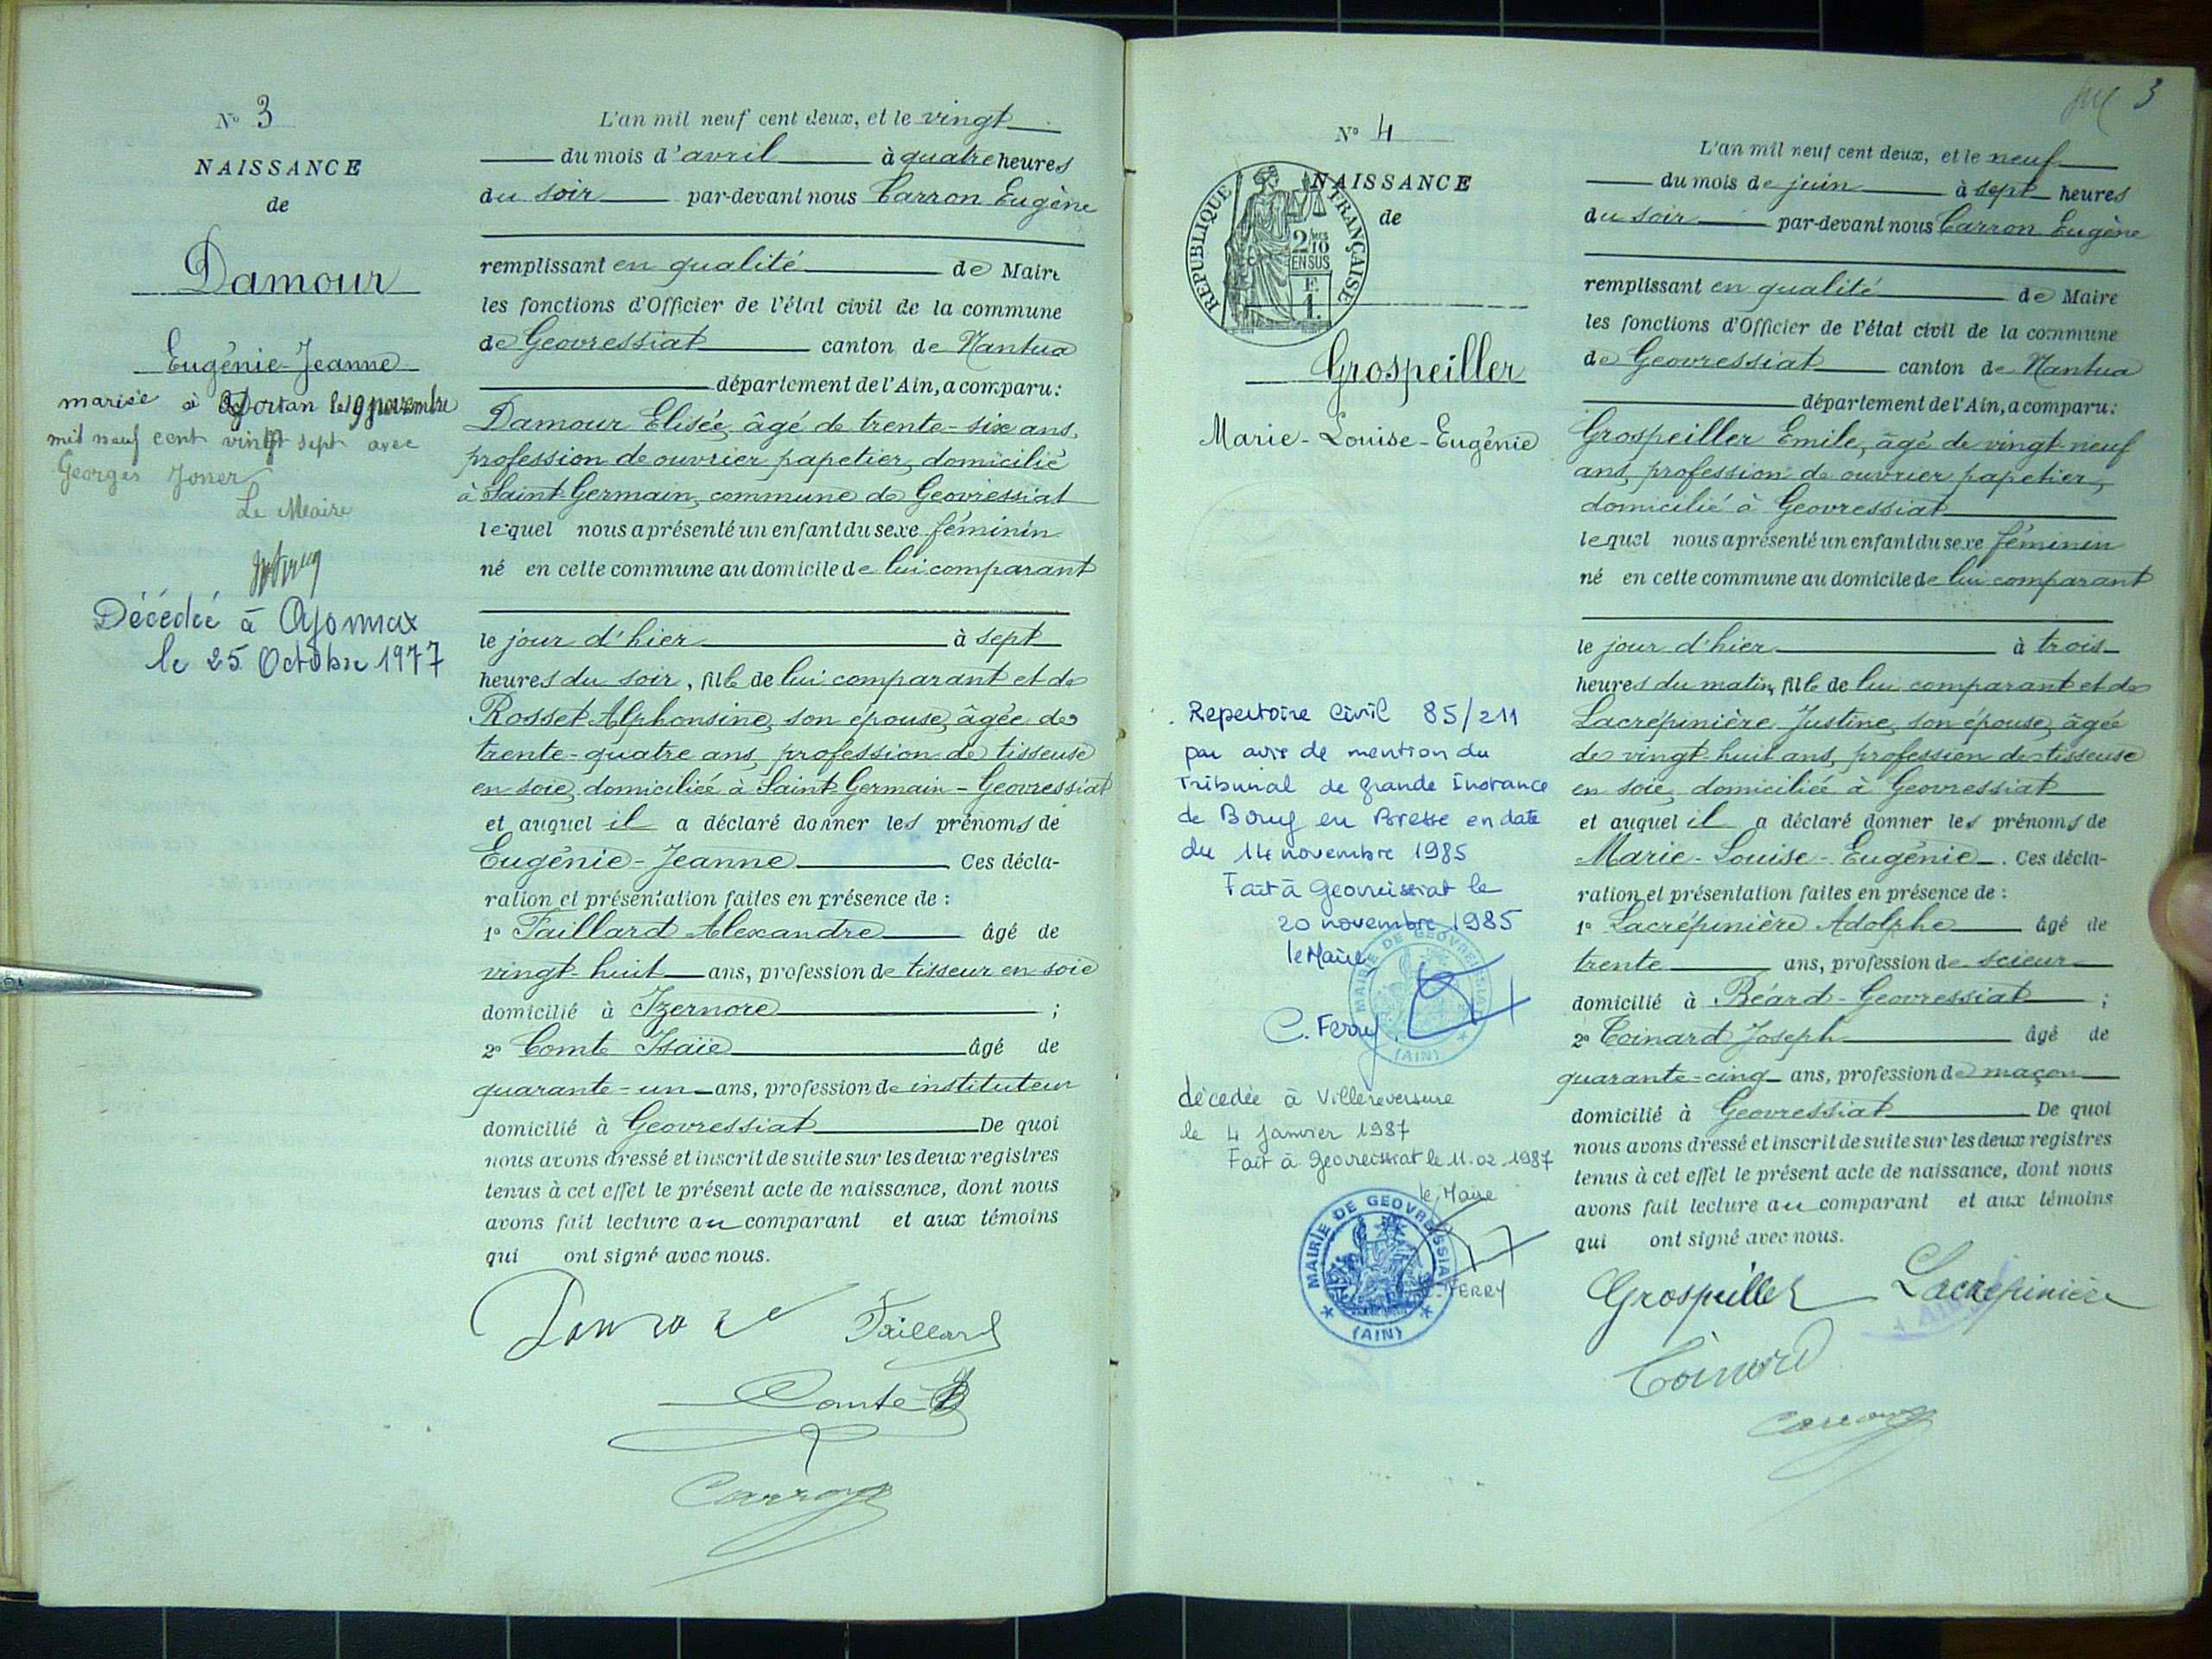 N° 3
NAISSANCE
de
Damour
Eugénie-Jeanne
mariée à Dortan le 19 novembre
mil neuf cent vingt sept avec
Georges Joner
Le Maire
Décédée à Oyonnax
le 25 Octobre 1977
L'an mil neuf cent deux, et le vingt
du mois d'avril à quatre heures
du soir par-devant nous Carron Eugène
remplissant en qualité de Maire
les fonctions d'Officier de l'état civil de la commune
de Geovressiat canton de Nantua
département de l'Ain, a comparu:
Damour Elisée, âgé de trente-six ans,
profession de ouvrier papetier, domicilié
à Saint-Germain, commune de Geovressiat
lequel nous a présenté un enfant du sexe féminin
né en cette commune au domicile de lui comparant
le jour d'hier à sept
heures du soir, fille de lui comparant et de
Rosset Alphonsine, son épouse, âgée de
trente-quatre ans, profession de tisseuse
en soie, domiciliée à Saint Germain-Geovressiat
et auquel il a déclaré donner les prénoms de
Eugénie-Jeanne Ces décla-
ration et présentation faites en présence de :
1° Faillard Alexandre âgé de
vingt-huit ans, profession de tisseur en soie
domicilié à Izernore ;
2° Comte Isaïe âgé de
quarante-un ans, profession de instituteur
domicilié à Geovressiat De quoi
nous avons dressé et inscrit de suite sur les deux registres
tenus à cet effet le présent acte de naissance, dont nous
avons fait lecture au comparant et aux témoins
qui ont signé avec nous.
Damour Faillard
Comte
Carron
3
N° 4
NAISSANCE
de
REPUBLIQUE FRANÇAISE
2/10 MES
EN SUS
F.
1.
Grospeiller
Marie-Louise-Eugénie
Repertoire Civil 85/211
par avis de mention du
Tribunal de grande Instance
de Bourg en Bresse en date
du 14 novembre 1985
Fait à Geovreissiat le
20 novembre 1985
le Maire
MAIRIE DE GEOVREISSIAT
(AIN)
C. Ferry
décédée à Villereversure
le 4 Janvier 1987
Fait à Geovreissiat le 11.02.1987
le Maire
MAIRIE DE GEOVREISSIAT
(AIN)
C. FERRY
L'an mil neuf cent deux, et le neuf
du mois de juin à sept heures
du soir par-devant nous Carron Eugène
remplissant en qualité de Maire
les fonctions d'Officier de l'état civil de la commune
de Geovressiat canton de Nantua
département de l'Ain, a comparu:
Grospeiller Emile, âgé de vingt-neuf
ans, profession de ouvrier papetier,
domicilié à Geovressiat
lequel nous a présenté un enfant du sexe féminin
né en cette commune au domicile de lui comparant
le jour d'hier à trois
heures du matin, fille de lui comparant et de
Lacrépinière Justine, son épouse, âgée
de vingt-huit ans, profession de tisseuse
en soie, domiciliée à Geovressiat
et auquel il a déclaré donner les prénoms de
Marie-Louise-Eugénie. Ces décla-
ration et présentation faites en présence de :
1° Lacrépinière Adolphe âgé de
trente ans, profession de scieur
domicilié à Béard-Geovressiat ;
2° Coinard Joseph âgé de
quarante-cinq ans, profession de maçon
domicilié à Geovressiat De quoi
nous avons dressé et inscrit de suite sur les deux registres
tenus à cet effet le présent acte de naissance, dont nous
avons fait lecture au comparant et aux témoins
qui ont signé avec nous.
Grospeiller Lacrépinière
Coinard
Carron